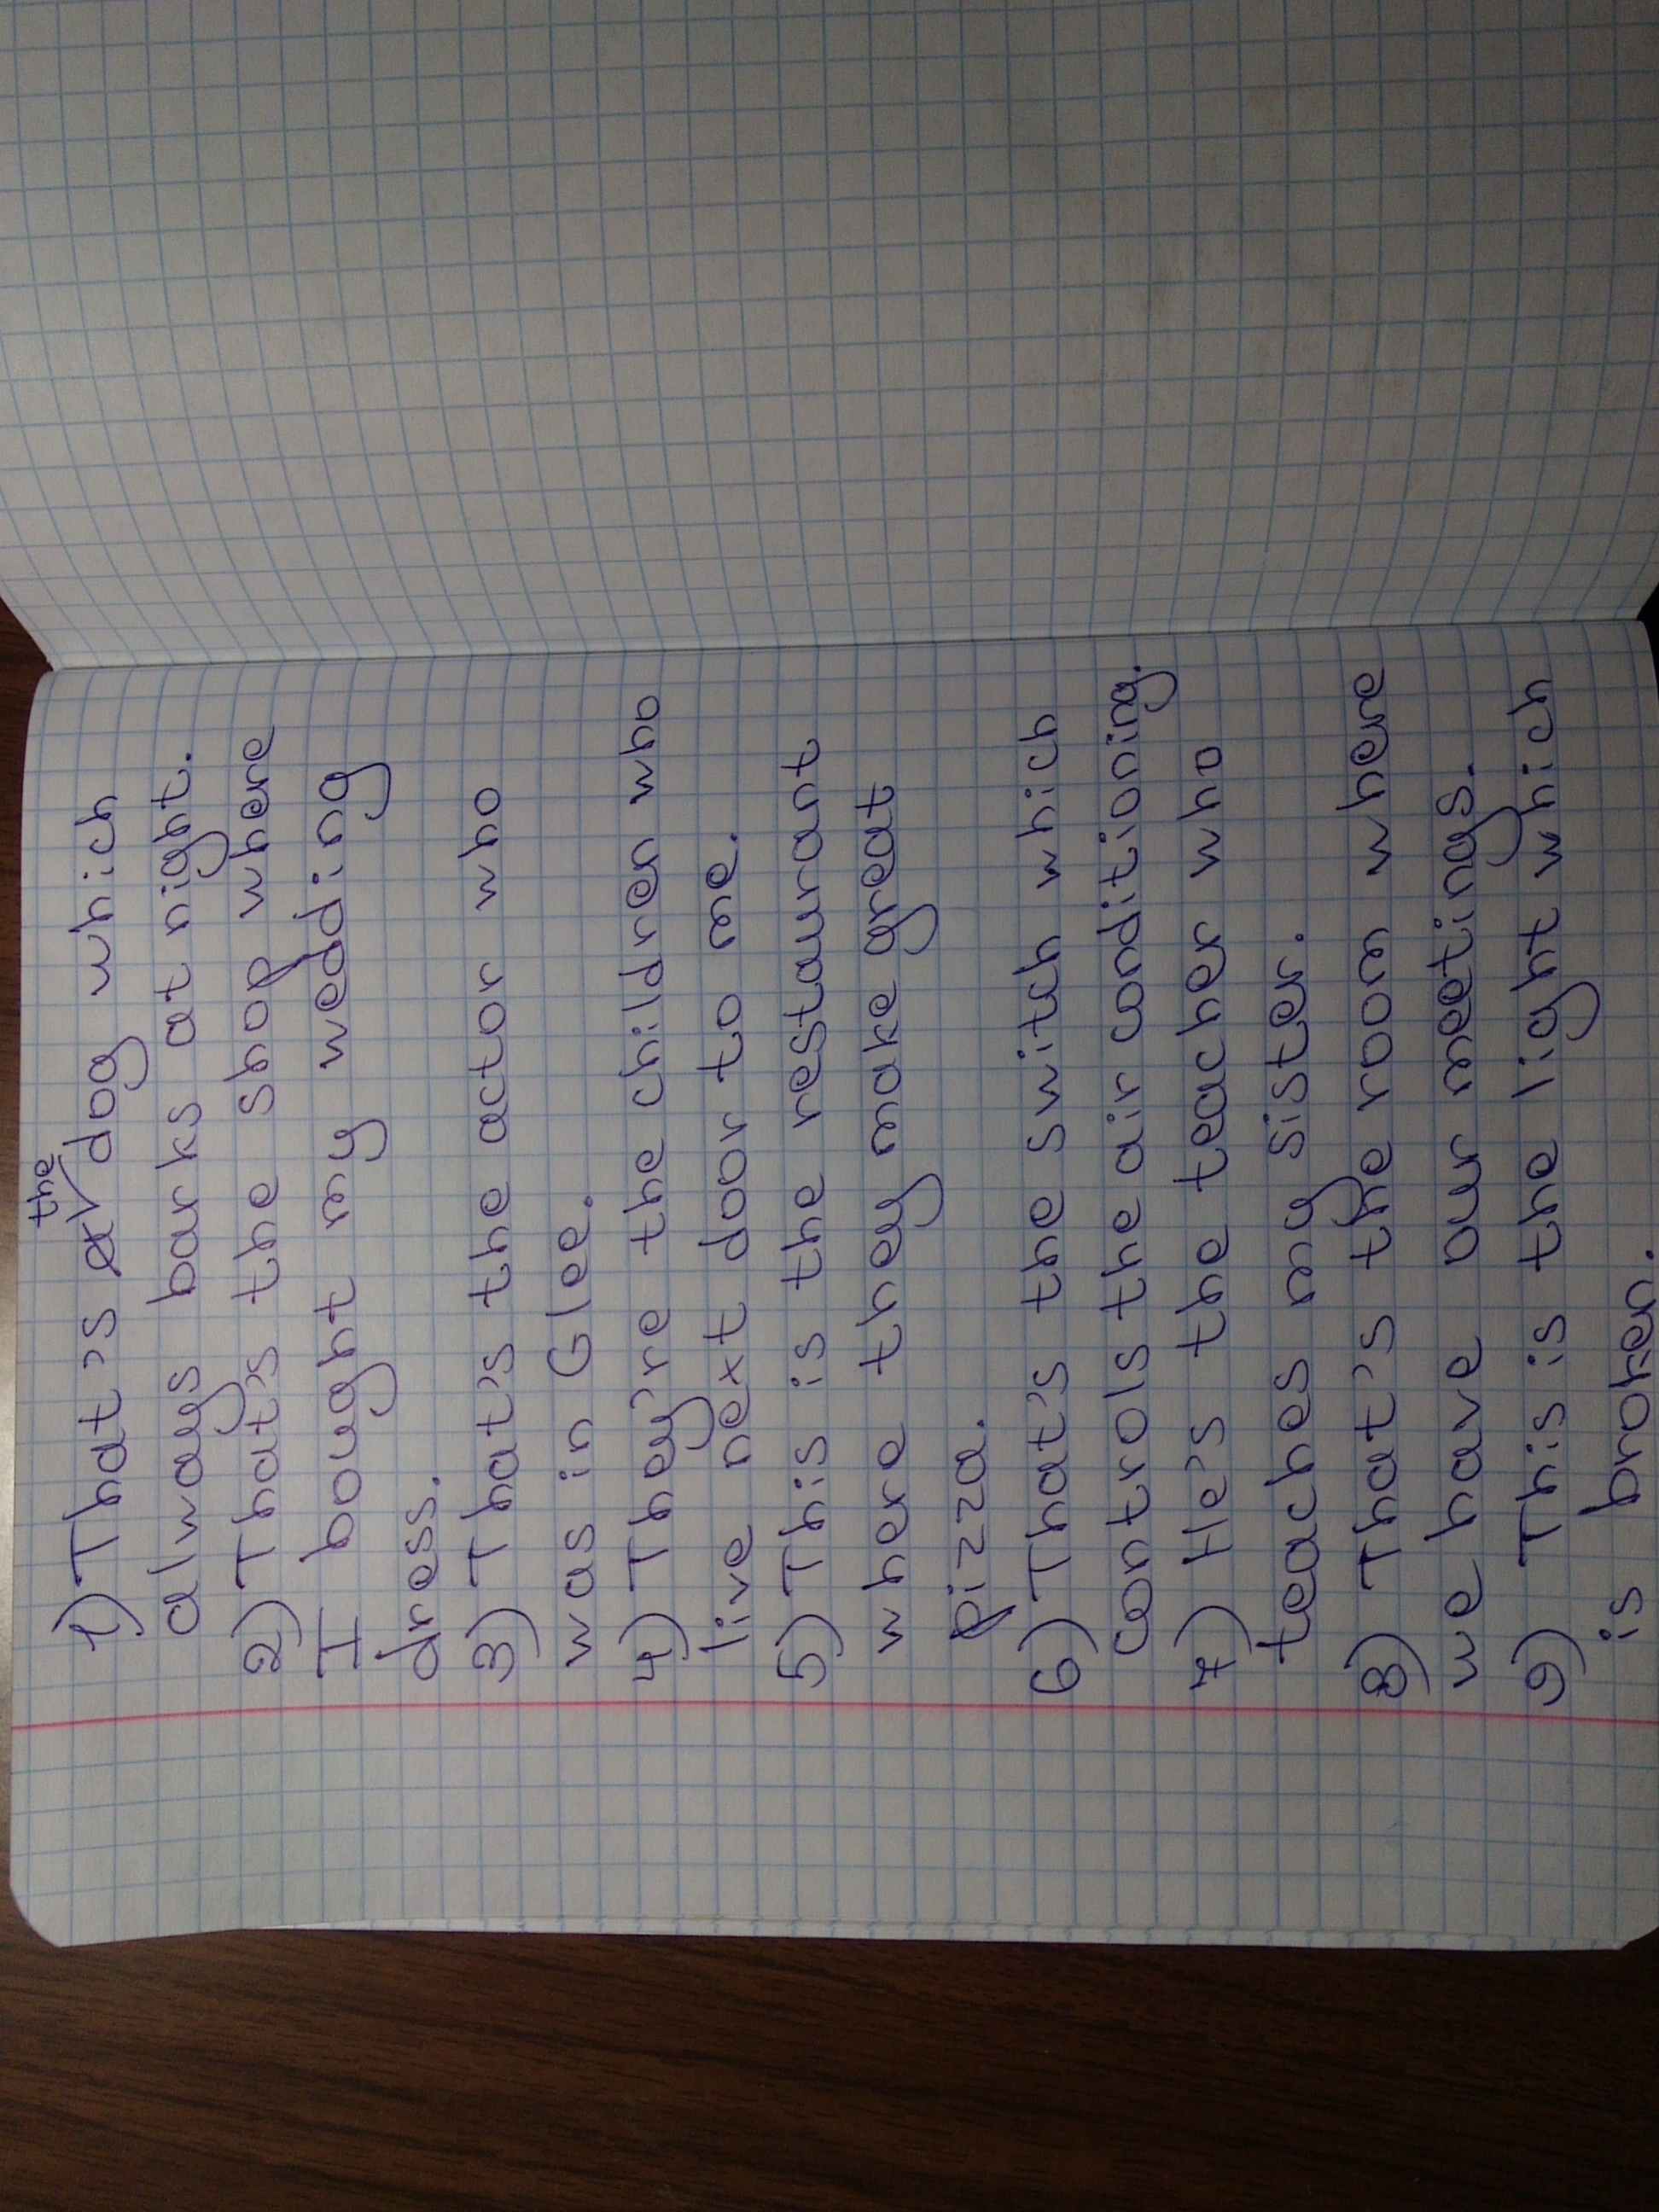 1) That's the dog which
always barks at night.
2) That's the shop where
I bought my wedding
dress.
3) That's the actor who
was in Glee.
4) They're the children who
live next door to me.
5) This is the restaurant
where they make great
pizza.
6) That's the switch which
controls the air conditioning.
7) He's the teacher who
teaches my sister.
8) That's the room where
we have our meetings.
9) This is the light which
is broken.